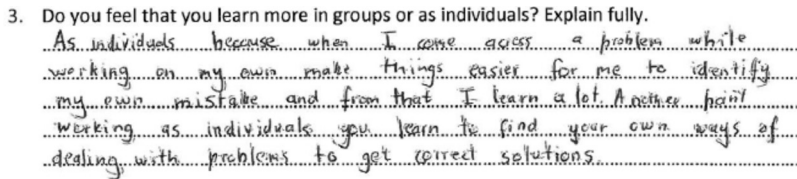 3. Do you feel that you learn more in groups or as individuals? Explain fully.
As individuals because when I come across a problem while
working on my own make things easier for me to identify
my own mistake and from that I learn a lot. Another point
working as individuals you learn to find your own ways of
dealing with problems to get correct solutions.